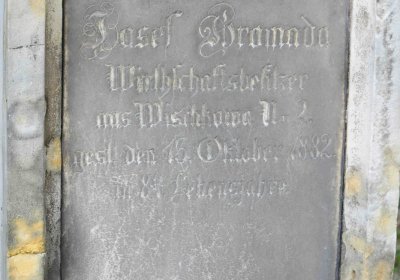 Josef Hromada
Wirthschaftsbesitzer
aus Wischkowa N. 2.
gest. den 15. Oktober 1882
im 84 Lebensjahre